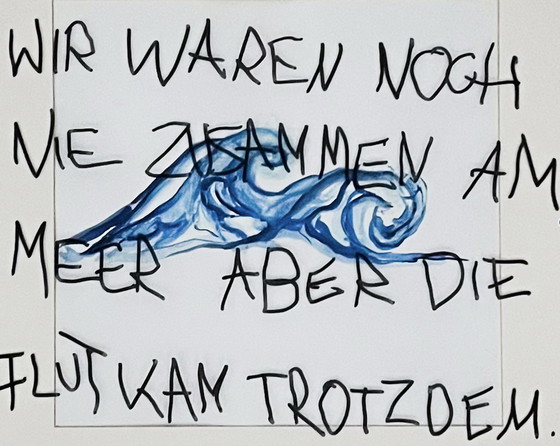 WIR WAREN NOCH
NIE ZUSAMMEN AM
MEER ABER DIE
FLUT KAM TROTZDEM.